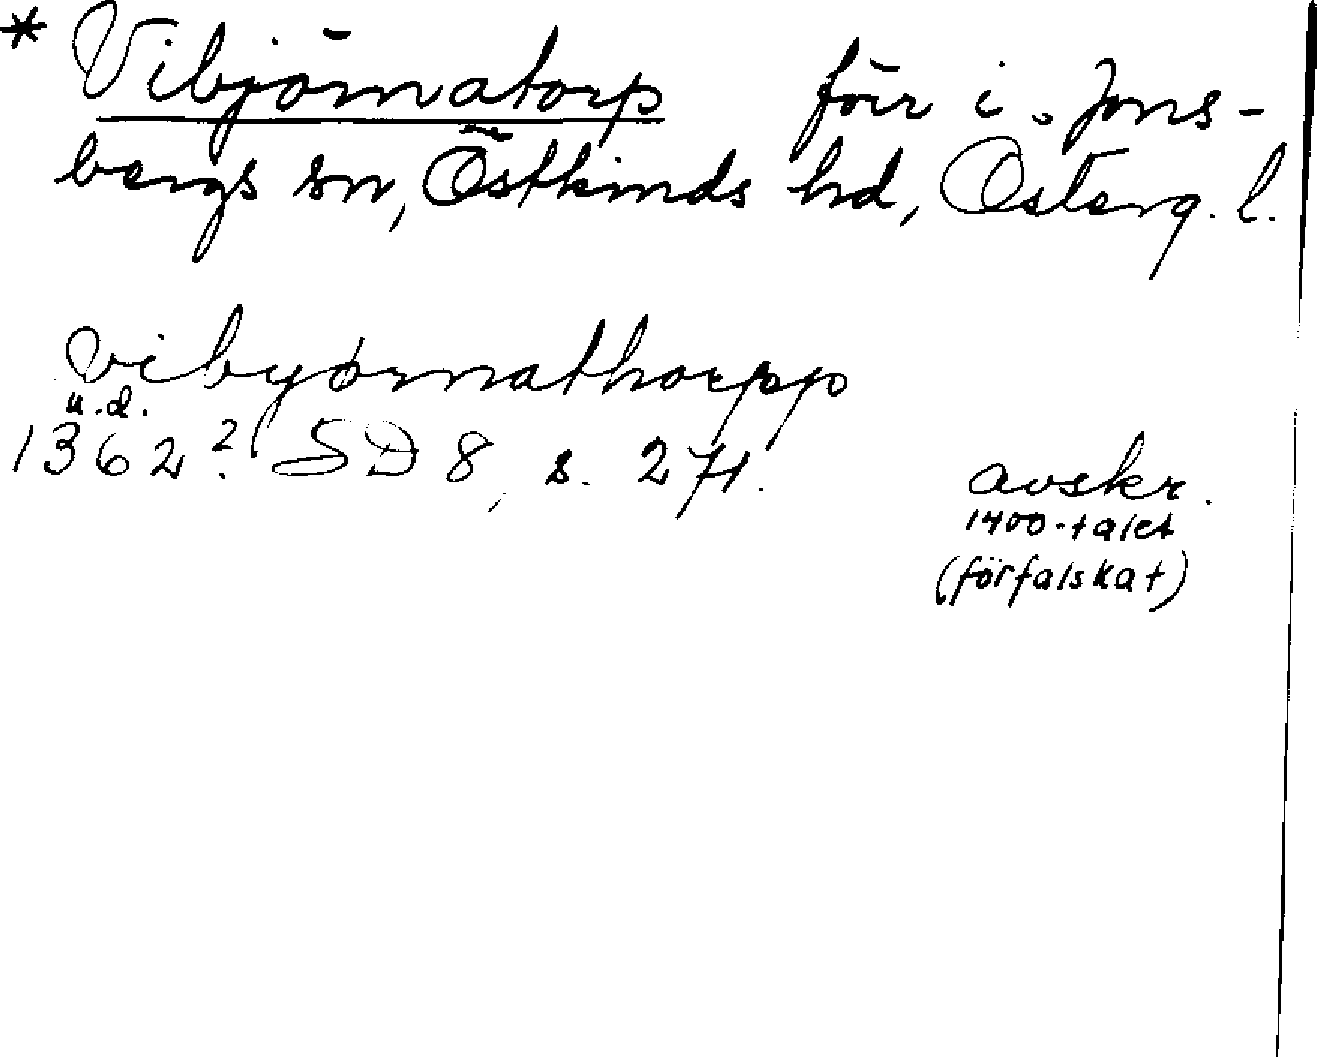 * Vibjörnatorp förr i Jons-
bergs sn, Östkinds hd, Österg. l.
vibyørnathorpp
u.d.
1362? SD 8, s. 271.
avskr.
1400-talet
(förfalskat)